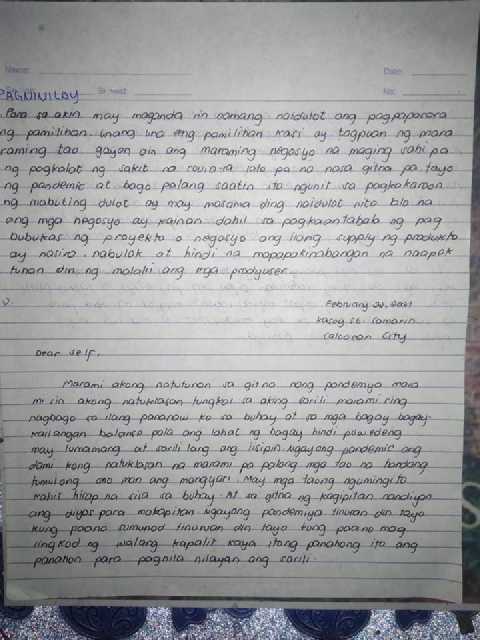 Name:
Date:
Subject:
No:
PAGNINILAY
Para sa akin may maganda rin namang naidulot ang pagpapasara
ng pamilihan. Unang una ang pamilihan kasi ay tagpuan ng mara
raming tao gayon din ang maraming negosyo na maging sahi pa
ng pagkalat ng sakit na covid-19 lalo pa na nasa gitna pa tayo
ng pandemic at bago palang saatin ito ngunit sa pagkakaroon
ng mabuting dulot ay may masama ding naidulot nito lalo na
ang mga negosyo ay kainan dahil sa pagkaantabab ng pag
bubukas ng proyekto o negosyo ang ilang supply ng produkto
ay nasira, nabulok at hindi na mapapakinabangan na naapek
tuhan din ng malaki ang mga prodyuser.
2.
February 22, 2021
Kasoy st. Camarin
Caloocan City
Dear self,
Marami akong natutunan sa gitna nang pandemiya mara
mi rin akong natuklasan tungkol sa aking sarili marami ring
nagbago sa ilang pananaw ko sa buhay at sa mga bagay bagay-
kailangan balanse pala ang lahat ng bagay hindi pwedeng
may lumamang at sarili lang ang iisipin ngayong pandemic ang
dami kong natuklasan na marami pa palang mga tao na handang
tumulong ano man ang mangyari May mga taong ngumingiti
kahit hirap na sila sa buhay. At sa gitna ng kagipitan nandiyan
ang diyos para makapitan ngayong pandemiya tinuran din tayo
kung paano sumunod tinuruan din tayo kung paano mag
lingkod ng walang kapalit kaya itong panahong ito ang
panahon para pagnilaynilayan ang sarili.